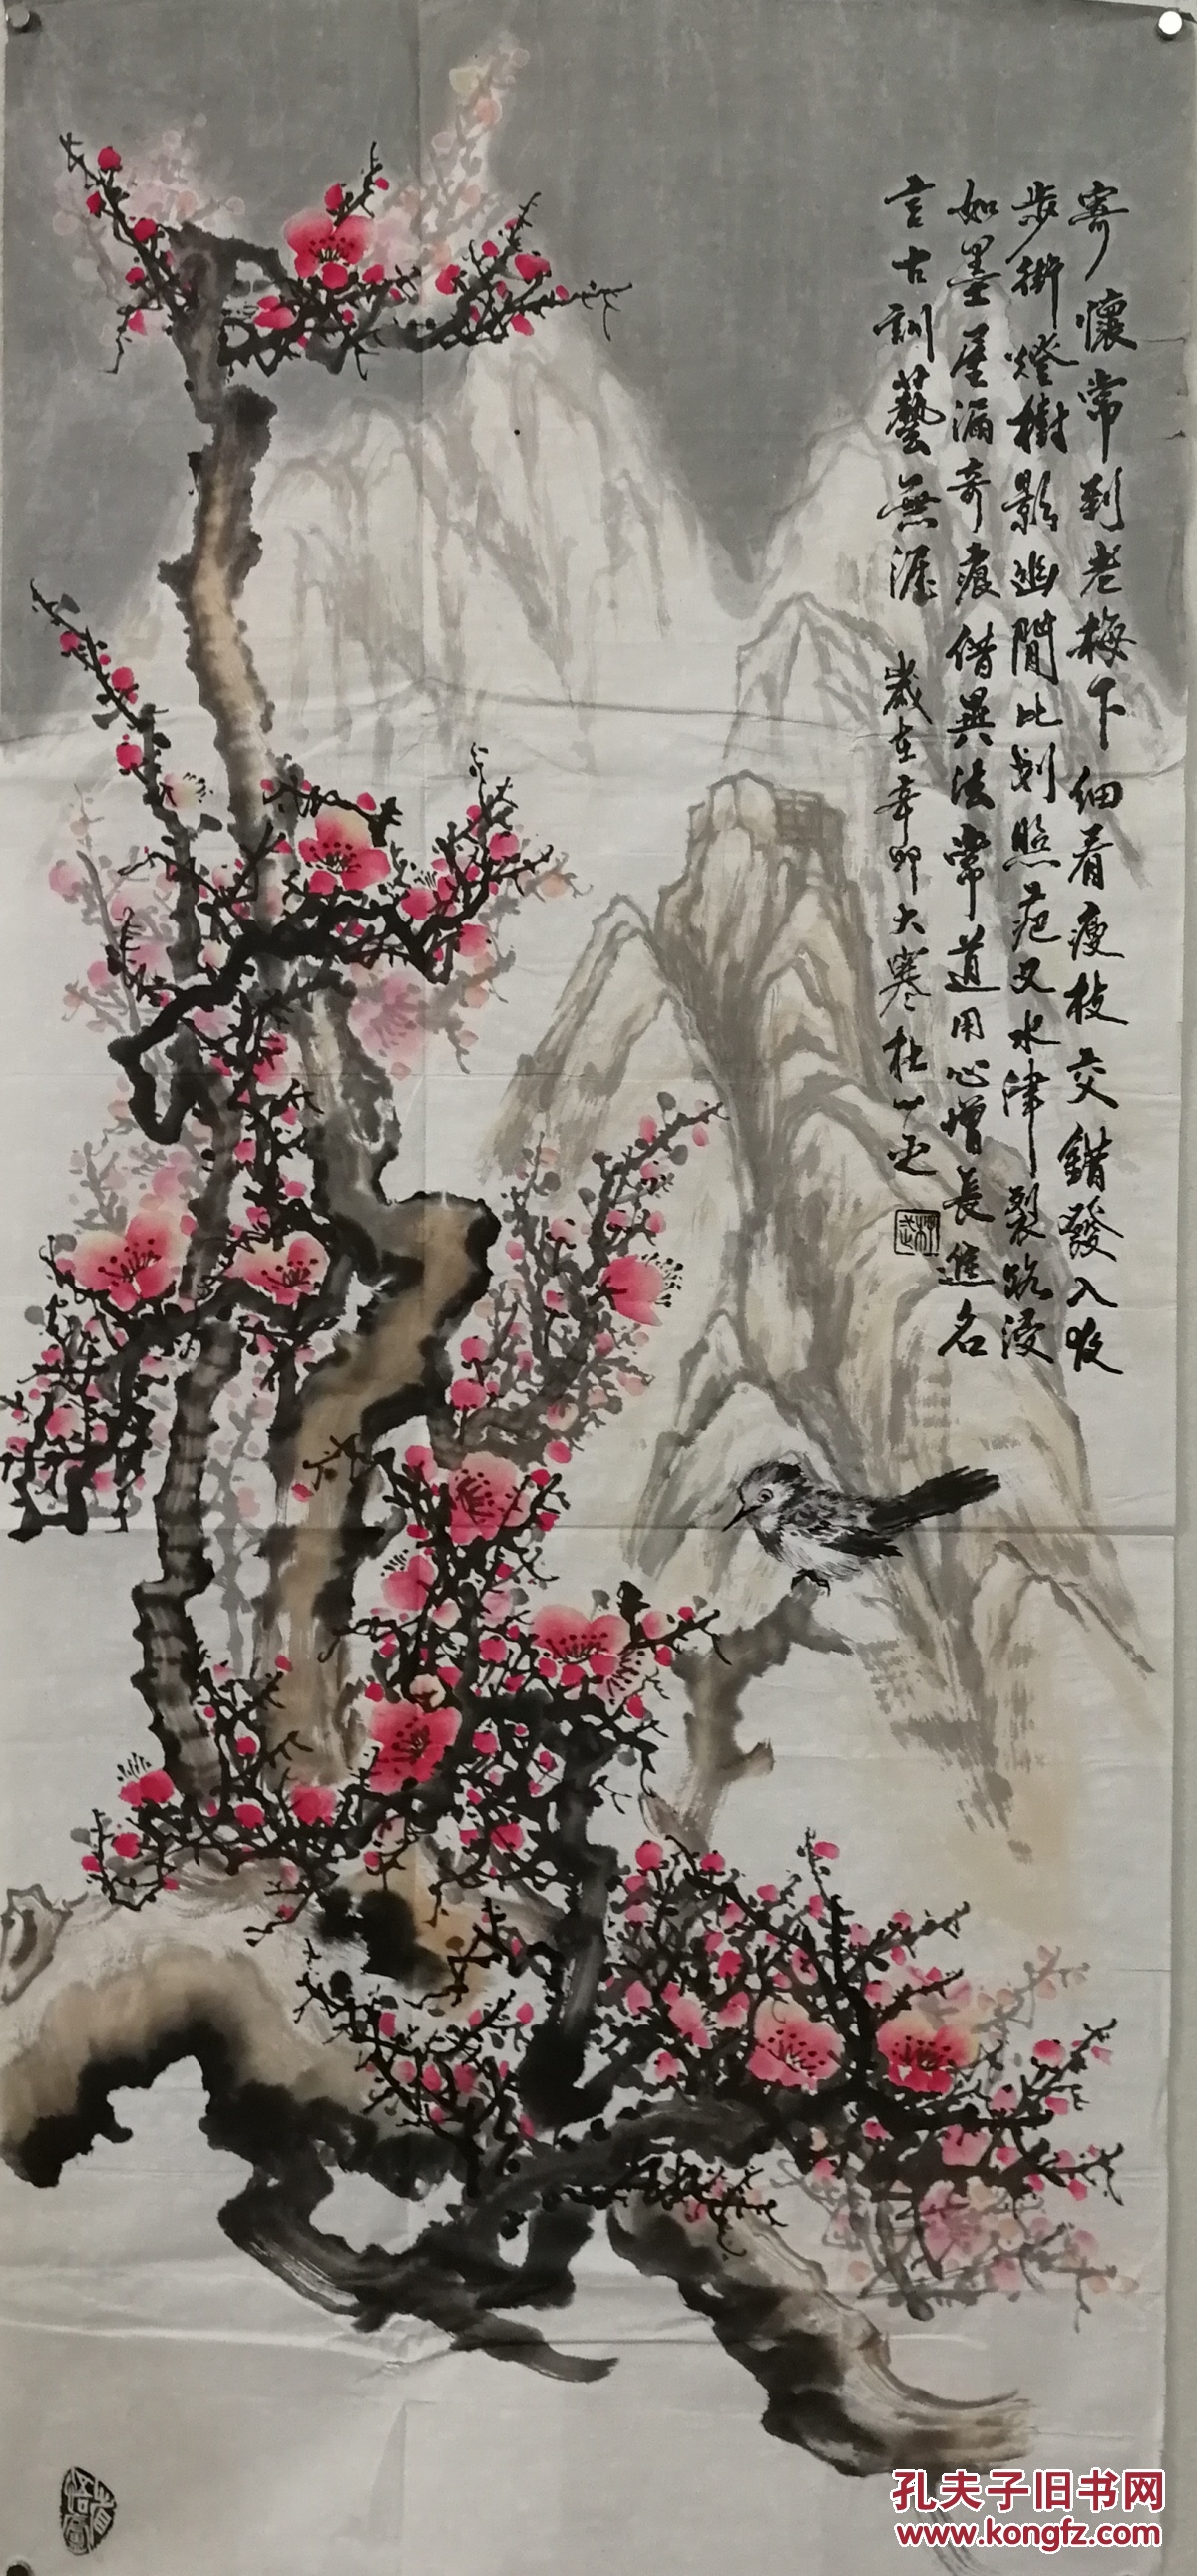 寄懷常到老梅下細看瘦枝交錯發入夜
步街燈樹影幽閒比划照范又水津裂路浸
如墨屋漏奇痕借異法常道用心增長進名
言古訓藝無涯 歲在辛卯大寒杜一
孔夫子旧书网
www.kongfz.com